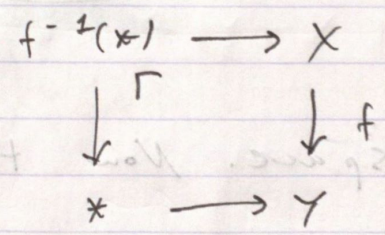 f⁻¹(*) → X
Γ
↓ ↓ f
* → Y